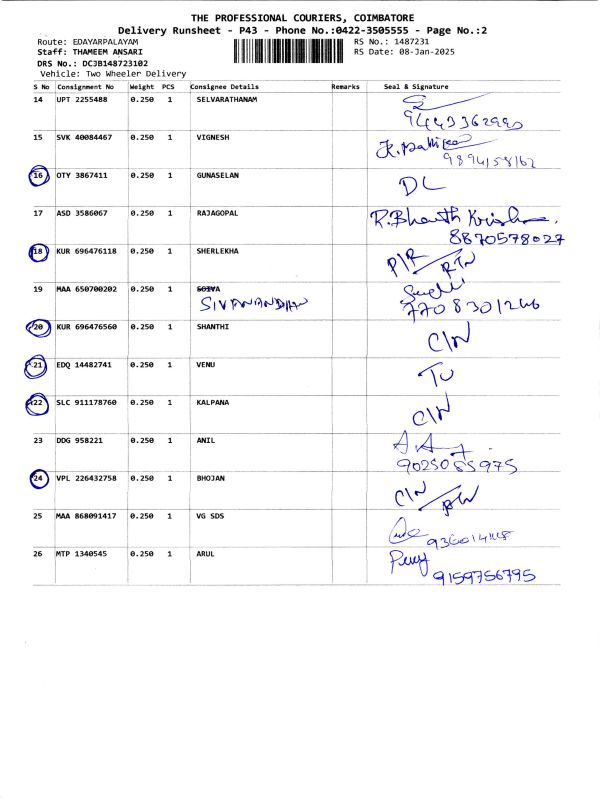 THE PROFESSIONAL COURIERS, COIMBATORE
Delivery Runsheet - P43 - Phone No.:0422-3505555 - Page No.:2
Route: EDAYARPALAYAM RS No.: 1487231
Staff: THAMEEM ANSARI RS Date: 08-Jan-2025
DRS No.: DCJB148723102
Vehicle: Two Wheeler Delivery
S No Consignment No Weight PCS Consignee Details Remarks Seal & Signature
14 UPT 2255488 0.250 1 SELVARATHANAM
15 SVK 40084467 0.250 1 VIGNESH
16 OTY 3867411 0.250 1 GUNASELAN DL
17 ASD 3586067 0.250 1 RAJAGOPAL R.Bharath Krishna.
8870578027
18 KUR 696476118 0.250 1 SHERLEKHA P/R RTN
19 MAA 650700202 0.250 1
SIVANANDHAN 7708301246
20 KUR 696476560 0.250 1 SHANTHI C/N
21 EDQ 14482741 0.250 1 VENU TU
22 SLC 911178760 0.250 1 KALPANA C/N
23 DDG 958221 0.250 1 ANIL
9025055975
24 VPL 226432758 0.250 1 BHOJAN C/N
25 MAA 868091417 0.250 1 VG SDS
26 MTP 1340545 0.250 1 ARUL
9159756795